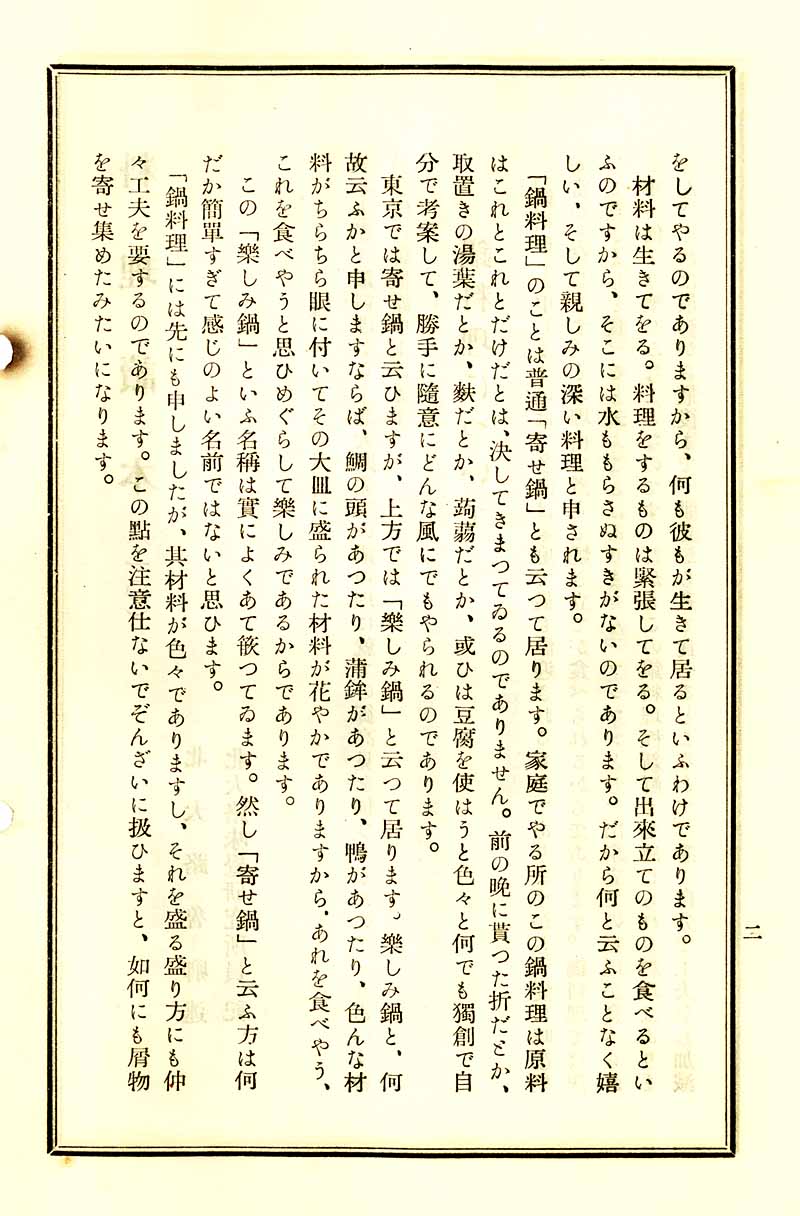 をしてやるのでありますから、何も彼もが生きて居るといふわけであります。
材料は生きてをる。料理をするものは緊張してをる。そして出來立てのものを食べるとい
ふのですから、そこには水ももらさぬすきがないのであります。だから何と云ふことなく嬉
しい、そして親しみの深い料理と申されます。
「鍋料理」のことは普通「寄せ鍋」とも云つて居ります。家庭でやる所のこの鍋料理は原料
はこれとこれとだけだとは、決してきまつてゐるのでありません。前の晩に貰つた折だとか、
取置きの湯葉だとか、麩だとか、蒟蒻だとか、或ひは豆腐を使はうと色々と何でも獨創で自
分で考案して、勝手に隨意にどんな風にでもやられるのであります。
東京では寄せ鍋と云ひますが、上方では「樂しみ鍋」と云つて居ります。樂しみ鍋と、何
故云ふかと申しますならば、鯛の頭があつたり、蒲鉾があつたり、鴨があつたり、色んな材
料がちらちら眼に付いてその大皿に盛られた材料が花やかでありますから、あれを食べやう、
これを食べやうと思ひめぐらして樂しみであるからであります。
この「樂しみ鍋」といふ名稱は實によくあて篏つてゐます。然し「寄せ鍋」と云ふ方は何
だか簡單すぎて感じのよい名前ではないと思ひます。
「鍋料理」には先にも申しましたが、其材料が色々でありますし、それを盛る盛り方にも仲
々工夫を要するのであります。この點を注意仕ないでぞんざいに扱ひますと、如何にも屑物
を寄せ集めたみたいになります。
二